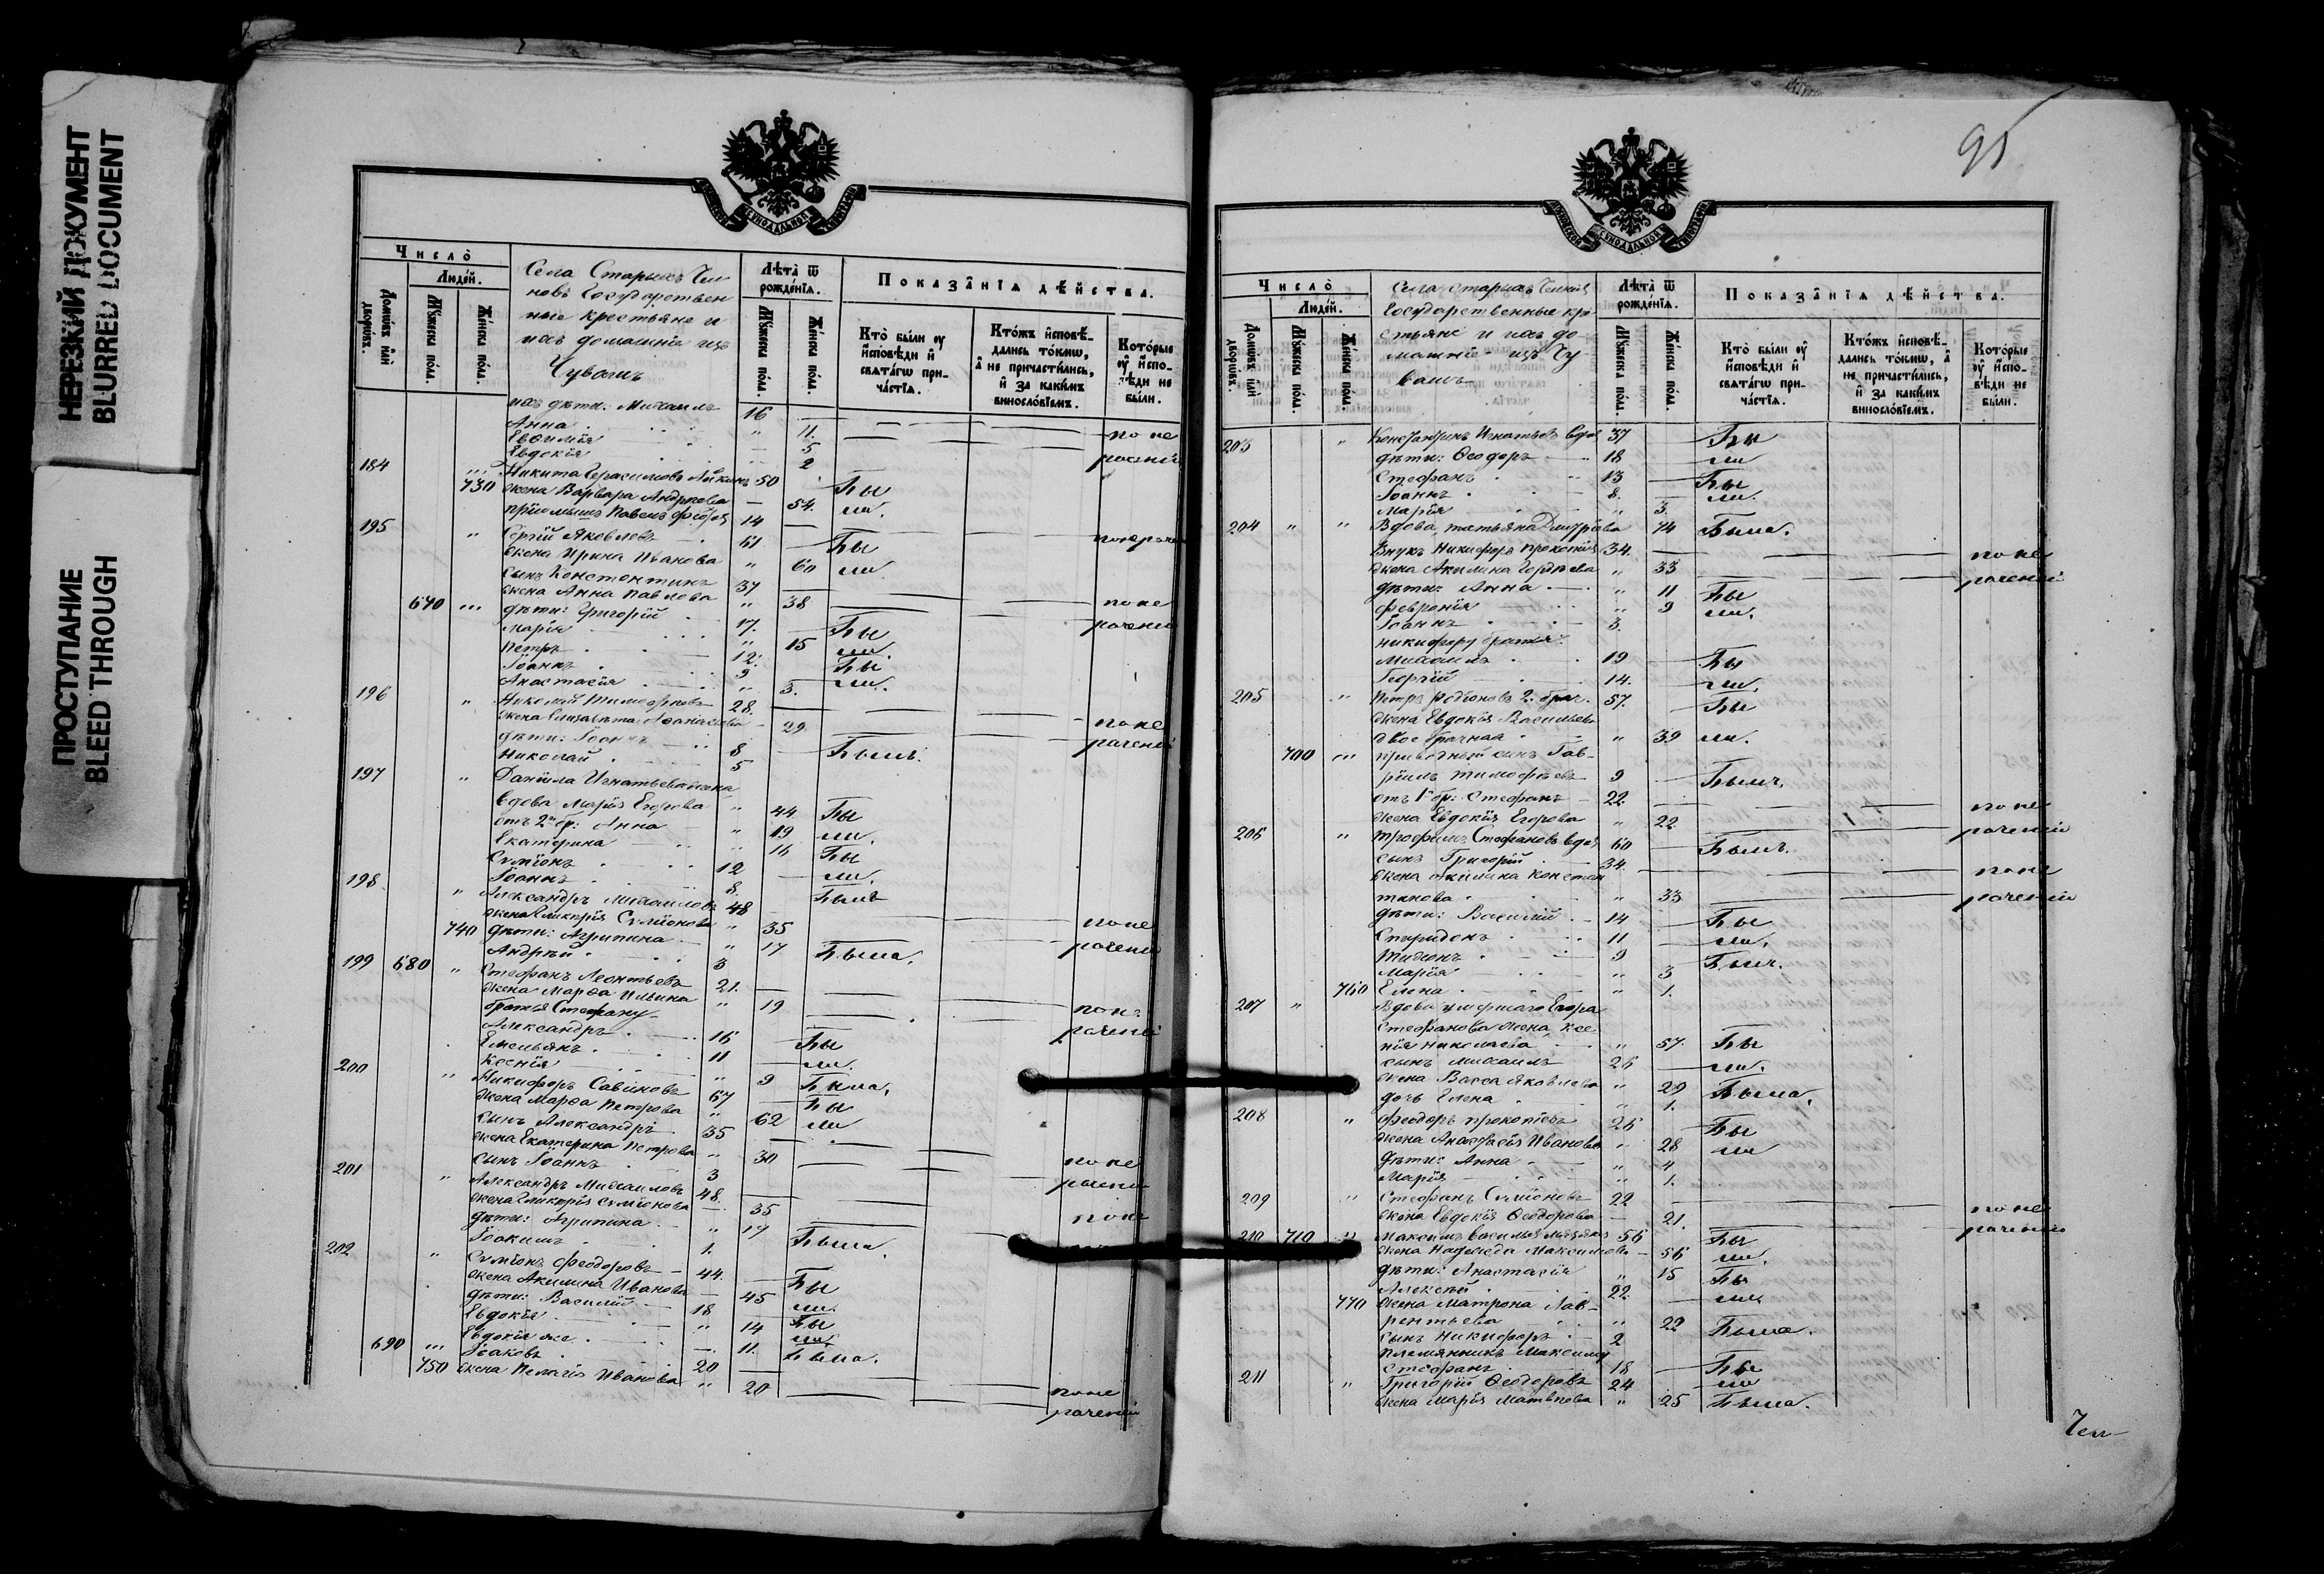 НЕРЕЗКИЙ ДОКУМЕНТ
BLURRED DOCUMENT
ПРОСТУПАНИЕ
BLEED THROUGH
МОСКОВСКОЙ СѴНОДАЛЬНОЙ ТИПОГРАФІИ
Число̀
Людей.
Домѡвъ или дворѡвъ.
Мꙋжеска пола.
Женска пола.
Села Старыхъ Чел
новъ Государствен
ные крестьяне и
ихъ домашніе изъ
Чувашъ
Лѣта ѿ рожденїѧ.
Мꙋжеска пола.
Женска пола.
Показанїѧ дѣйства.
Кто были ᲂу исповѣди и свѧтагѡ причастїѧ.
Ктожъ исповѣдались токмѡ, а не причастились, и за какимъ винословїемъ.
Которые ᲂу исповѣди не были.
ихъ дѣти: Михаилъ 16
Анна " 11 по не
Евфимія 5 рачению
Евдокія 2
184 Никита Герасимовъ 50 Бы
730 жена Варвара Андреева 54. ли.
пріемышъ Павелъ 14
195 " Сергій Яковлевъ 61 Бы
жена Ирина Иванова " 60 ли
сынъ Константинъ 37
жена Анна Павлова " 38 по не
670 дѣти: Григорій 17. Бы рачению
Марія " 15 ли.
Петръ 12. Бы
Іоаннъ 9 ли.
Анастасія " 3.
196 " Николай Тимофеевъ 28.
жена Елизавета 29 по не
дѣти: Іоаннъ 8 Былъ. рачению
Николай 5
197 " Даніила Игнатьева жена
вдова Марія Егорова " 44 Бы
отъ 2 бр: Анна " 19 ли.
Екатерина " 16 Бы
Сѵмеонъ 12 ли.
Іоаннъ 8. Былъ
198 " Александръ Михаиловъ 48
жена Гликерія Сѵмеонова " 35 по не
740 дѣти: Агрипина " 17 Была. рачению
Андрей 3
199 680 " Стефанъ Леонтьевъ 21.
жена Марѳа Ильина " 19 по не
братья Стефану рачению
Александръ 16 Бы
Емельянъ 11 ли.
Ксенія " 9 Была.
200 " Никифоръ Савиновъ 67 Бы
жена Марѳа Петрова " 62 ли
сынъ Александръ 35
жена Екатерина Петрова " 30 по не
сынъ Іоаннъ 3 рачению
201 " Александръ Михаиловъ 48.
жена Гликерія Сѵмеонова 35 по не
дѣти: Агрипина " 17 Была.
Іоакимъ 1.
202 " Сѵмеонъ Феодоровъ 44. Бы
жена Акилина Иванова 45 ли.
дѣти: Василій 18 Бы
Евдокія " 14 ли.
Евдокія же 11. Была.
690 Іаковъ 20
750 жена Пелагія Иванова " 20 по не
рачению
95
МОСКОВСКОЙ СѴНОДАЛЬНОЙ ТИПОГРАФІИ
Число̀
Людей.
Домѡвъ или дворѡвъ.
Мꙋжеска пола.
Женска пола.
Села Старыхъ
Государственные кре
стьяне и ихъ до
машніе изъ Чу
вашъ
Лѣта ѿ рожденїѧ.
Мꙋжеска пола.
Женска пола.
Показанїѧ дѣйства.
Кто были ᲂу исповѣди и свѧтагѡ причастїѧ.
Ктожъ исповѣдались токмѡ, а не причастились, и за какимъ винословїемъ.
Которые ᲂу исповѣди не были.
203 " Константинъ Игнатьевъ вдов 37 Бы
дѣти: Ѳеодоръ 18 ли
Стефанъ 13 Бы
Іоаннъ 8. ли.
Марія " 3.
204 " " Вдова, татьяна Дмитріева 74 Была.
Внукъ Никифоръ Прокопіев 34. по не
жена Акилина Гордѣева " 33 рачению
дѣти: Анна " 11 Бы
Февронія " 9 ли.
Іоаннъ 3.
Никифору братья
Михаилъ 19 Бы
Георгій 14. ли.
205 " Петръ Родіоновъ 2. брач. 57. Бы
жена Евдокія Васильева
двоебрачная " 39 ли.
700 приводный сынъ Гав-
ріилъ Тимофѣевъ 9 Былъ.
отъ 1 бр: Стефанъ 22. по не
жена Евдокія Егорова " 22 рачению
206 " Трофимъ Стефановъ вдов 60 Былъ.
сынъ Григорій 34. по не
жена Акилина Констан
тинова " 33 рачению
дѣти: Василій 14 Бы
Спиридонъ 11 ли.
Тихонъ 9 Былъ.
Марія " 3
760 Елена " 1.
207 " Вдова умершаго Егора
Стефанова жена, Ксе
нія Николаева " 57. Бы
сынъ Михаилъ 26 ли.
жена Васса Яковлева " 29 Была.
дочь Елена " 1.
208 " Феодоръ Прокопіевъ 26 Бы
жена Анастасія Иванова " 28 ли
дѣти: Анна " 4
Марія " 1.
209 " Стефанъ Сѵмеоновъ 22 по не
жена Евдокія Ѳеодорова 21. рачению
210 710 " Максимъ Васильев 56 Бы
жена Надежда Максимова 56 ли.
дѣти: Анастасія " 15 Бы
Алексѣй 22. ли
770 жена Матрона Лав-
рентьева " 22 Была.
сынъ Никифоръ 2
племянникъ Максиму
Стефанъ 18 Бы
211 " Григорій Ѳеодоровъ 24 ли
жена Марія Матвѣева " 25 Была.